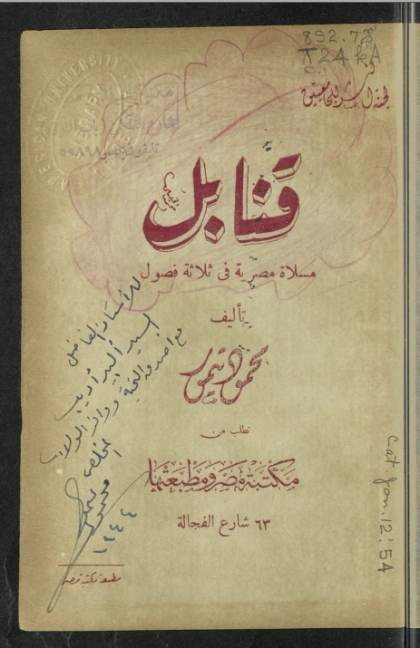 892.78
T24kA
C.1
لجنة النشر للجامعيين
قنابل
مسلاة مصرية فى ثلاثة فصول
تأليف
محمود تيمور
تطلب من
مكتبة مصر ومطبعتها
٦٣ شارع الفجالة
للأستاذ الفاضل
السيد البير أديب
مع أصدق التحية
المخلص
محمود تيمور
١٩٤٤
cat. Jan. 12. '54